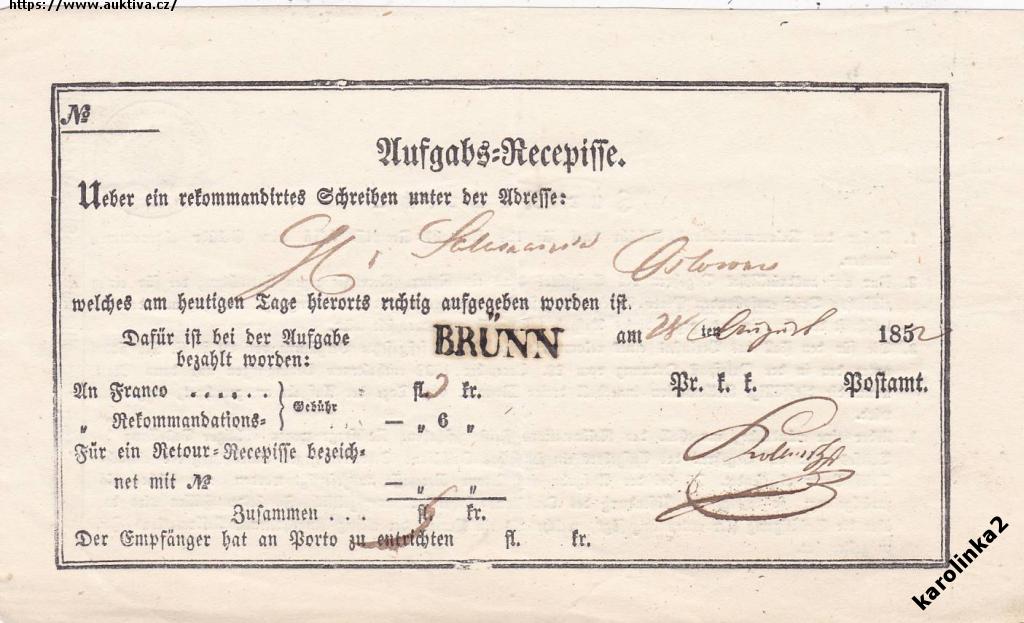 https://www.auktiva.cz/
№
Aufgabs-Recepisse.
Ueber ein rekommandirtes Schreiben unter der Adresse:
welches am heutigen Tage hierorts richtig aufgegeben worden ist.
Dafür ist bei der Aufgabe
bezahlt worden:
BRÜNN
am 28 ten August 1852
An Franco . . . . . . fl. kr.
Gebühr
„ Rekommandations- — „ 6 „
Pr. k. k. Postamt.
Für ein Retour-Recepisse bezeich-
net mit № — „ „
Zusammen . . . fl. 6 kr.
Der Empfänger hat an Porto zu entrichten fl. kr.
karolinka2